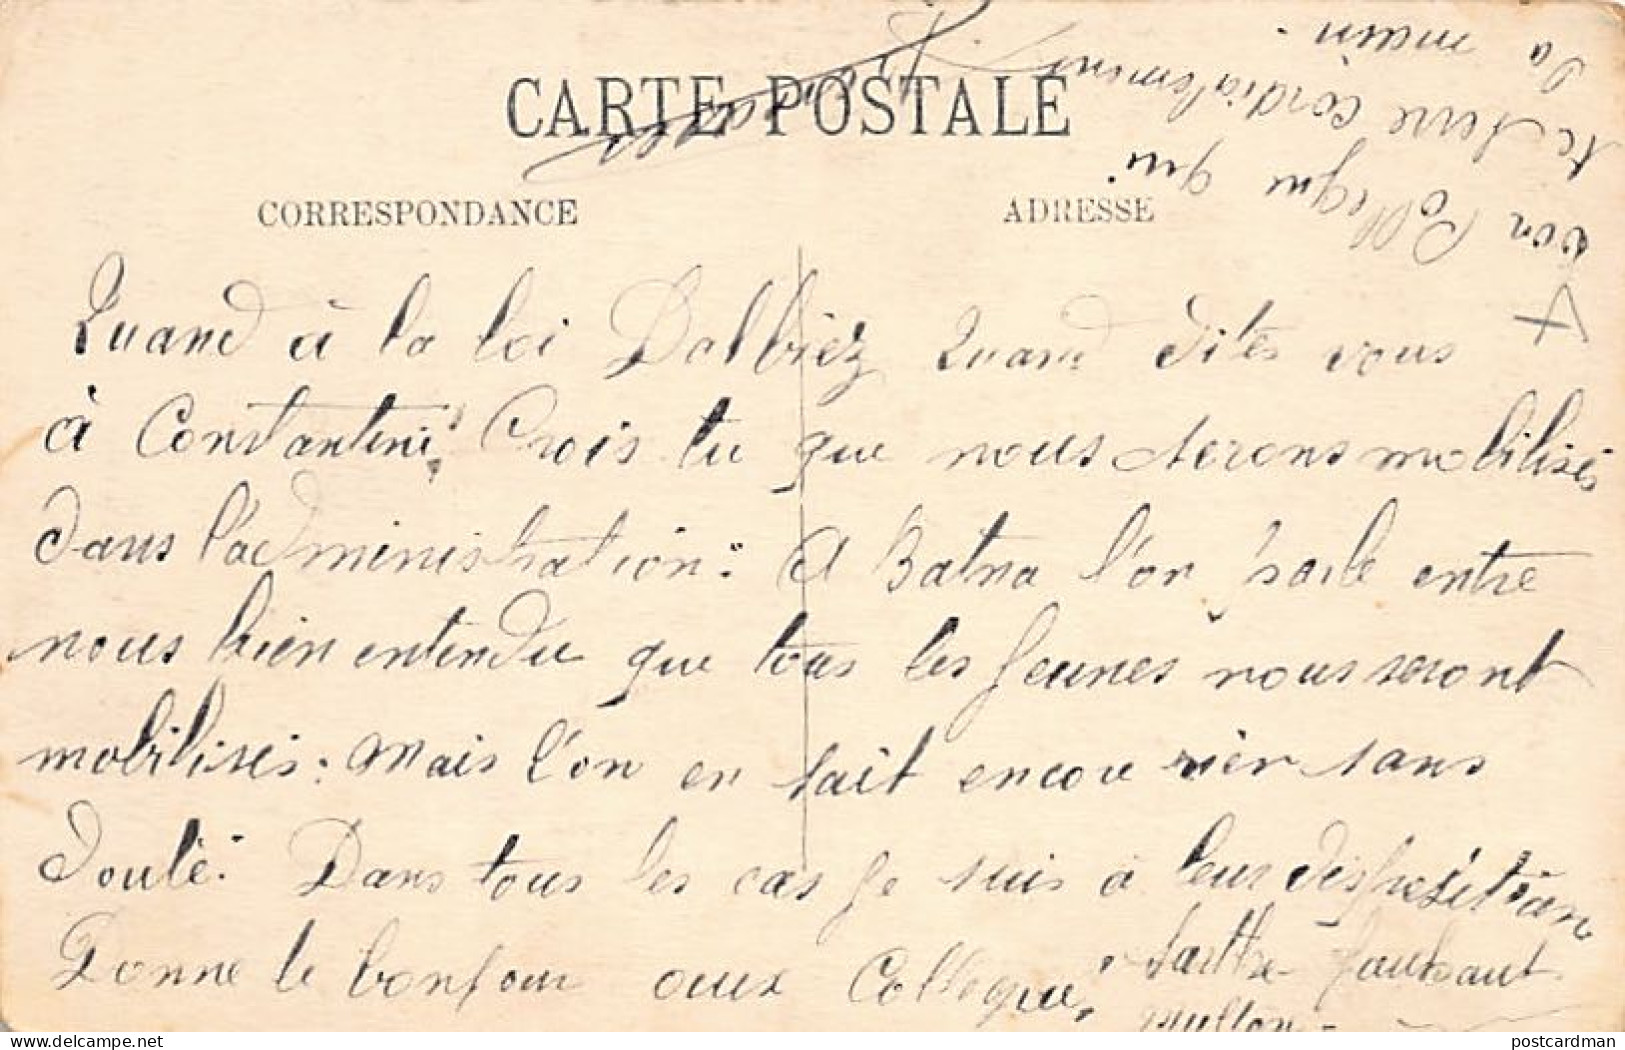 CARTE POSTALE
CORRESPONDANCE
ADRESSE
Quand à la loi Dalbiez Quand dites vous
à Constantine? Crois tu que nous serons mobilisés
dans l'administration: A Batna l'on parle entre
nous bien entendu que tous les jeunes nous seront
mobilisés: Mais l'on en sait encore rien sans
doute. Dans tous les cas je suis à leur disposition
Donne le bonjour aux Collegues,
ton Collegue qui
te serre cordialement
la main.
postcardman